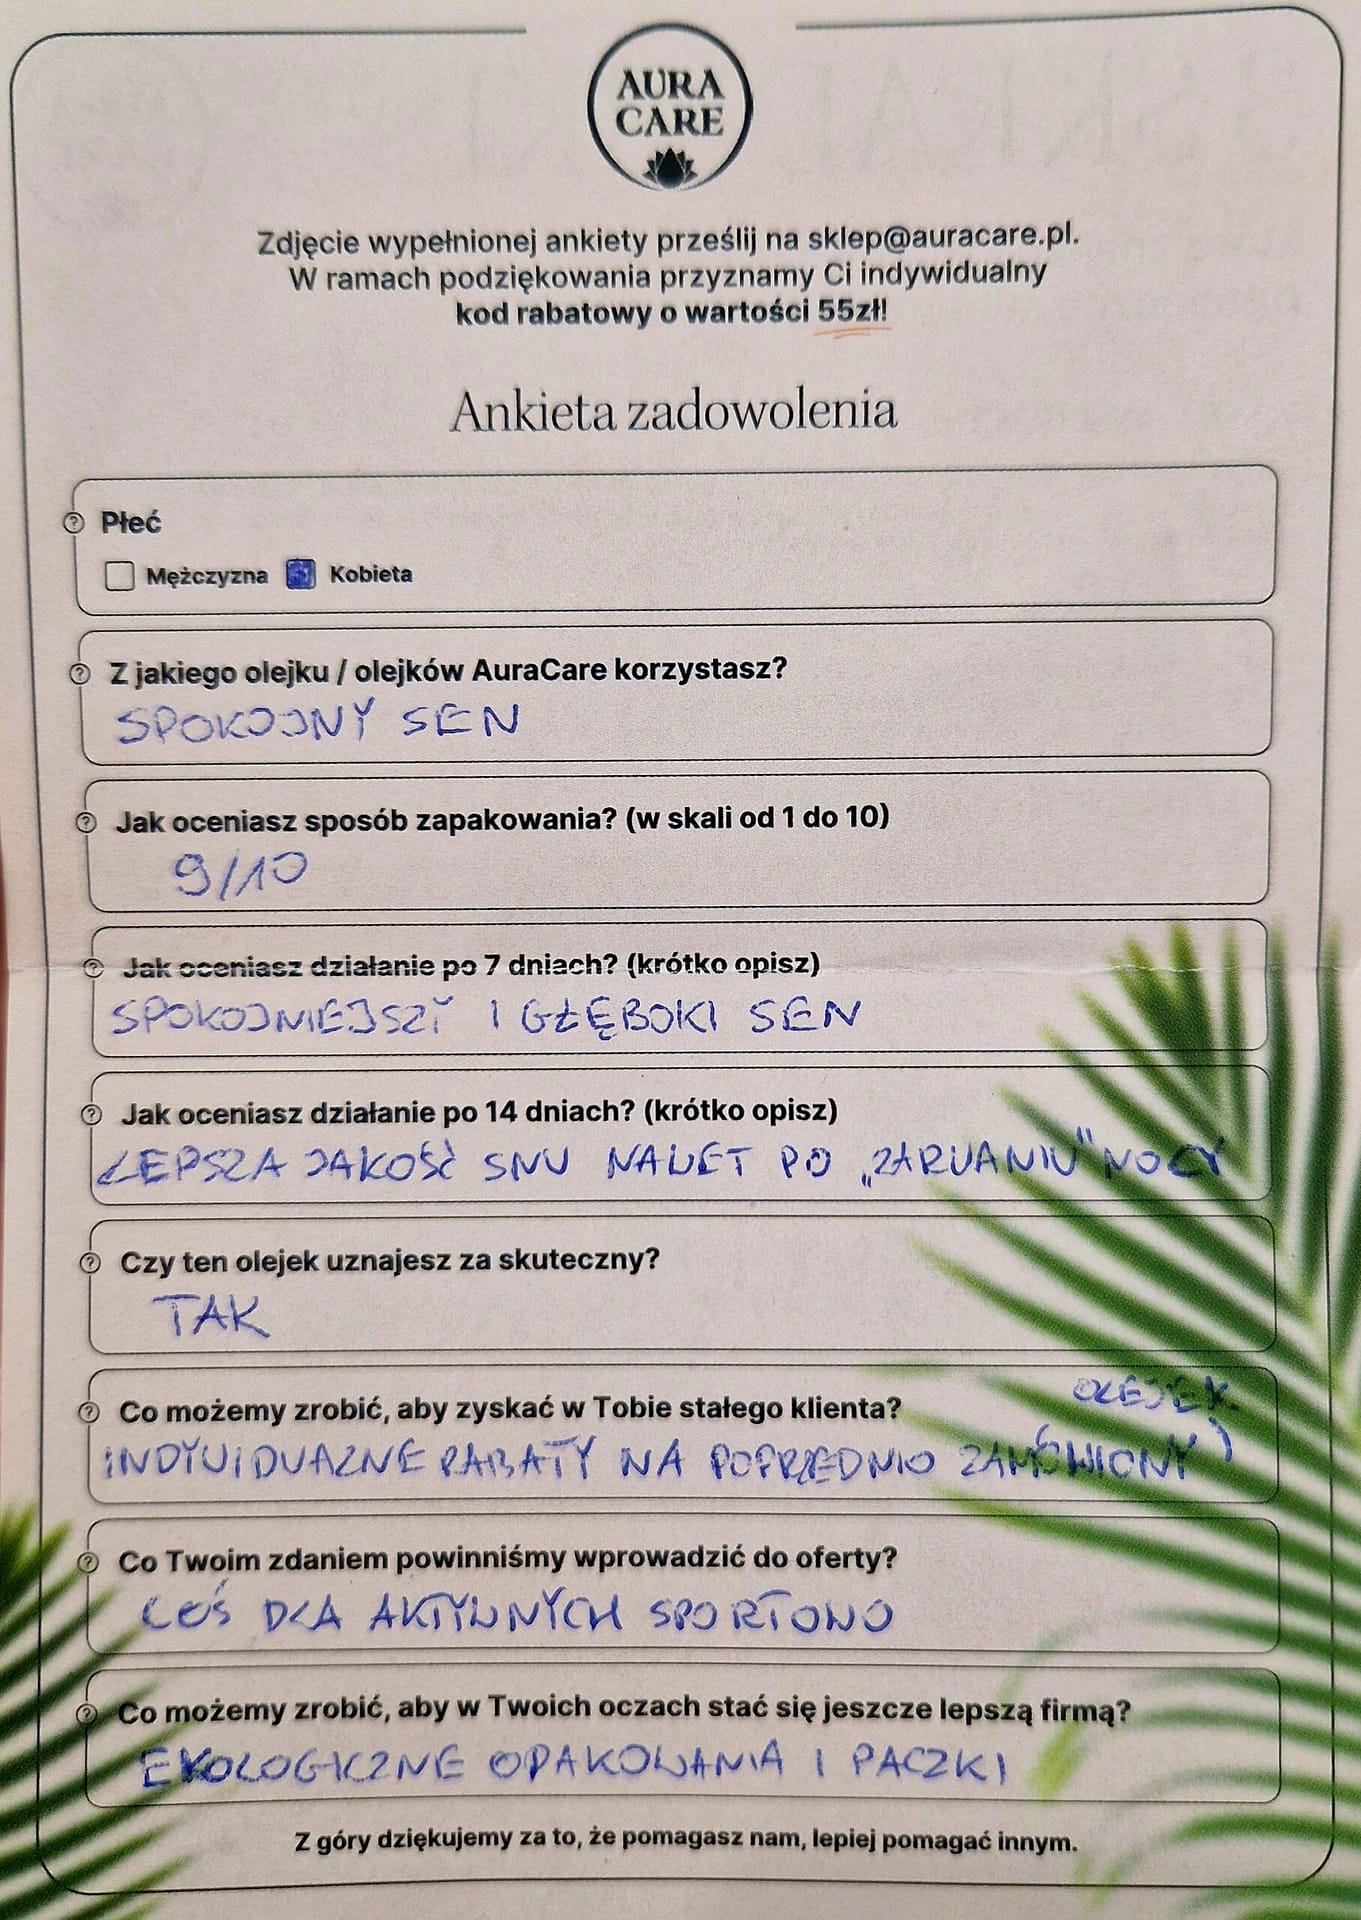 AURA
CARE
Zdjęcie wypełnionej ankiety prześlij na sklep@auracare.pl.
W ramach podziękowania przyznamy Ci indywidualny
kod rabatowy o wartości 55zł!
Ankieta zadowolenia
Płeć
Mężczyzna Kobieta
Z jakiego olejku / olejków AuraCare korzystasz?
SPOKOJNY SEN
Jak oceniasz sposób zapakowania? (w skali od 1 do 10)
9/10
Jak oceniasz działanie po 7 dniach? (krótko opisz)
SPOKOJNIEJSZY I GŁĘBOKI SEN
Jak oceniasz działanie po 14 dniach? (krótko opisz)
LEPSZA JAKOŚĆ SNU NAWET PO „ZARWANIU" NOCY
Czy ten olejek uznajesz za skuteczny?
TAK
Co możemy zrobić, aby zyskać w Tobie stałego klienta?
INDYWIDUALNE RABATY NA POPRZEDNIO ZAMÓWIONY
OLEJEK
Co Twoim zdaniem powinniśmy wprowadzić do oferty?
COŚ DLA AKTYWNYCH SPORTOWO
Co możemy zrobić, aby w Twoich oczach stać się jeszcze lepszą firmą?
EKOLOGICZNE OPAKOWANIA I PACZKI
Z góry dziękujemy za to, że pomagasz nam, lepiej pomagać innym.